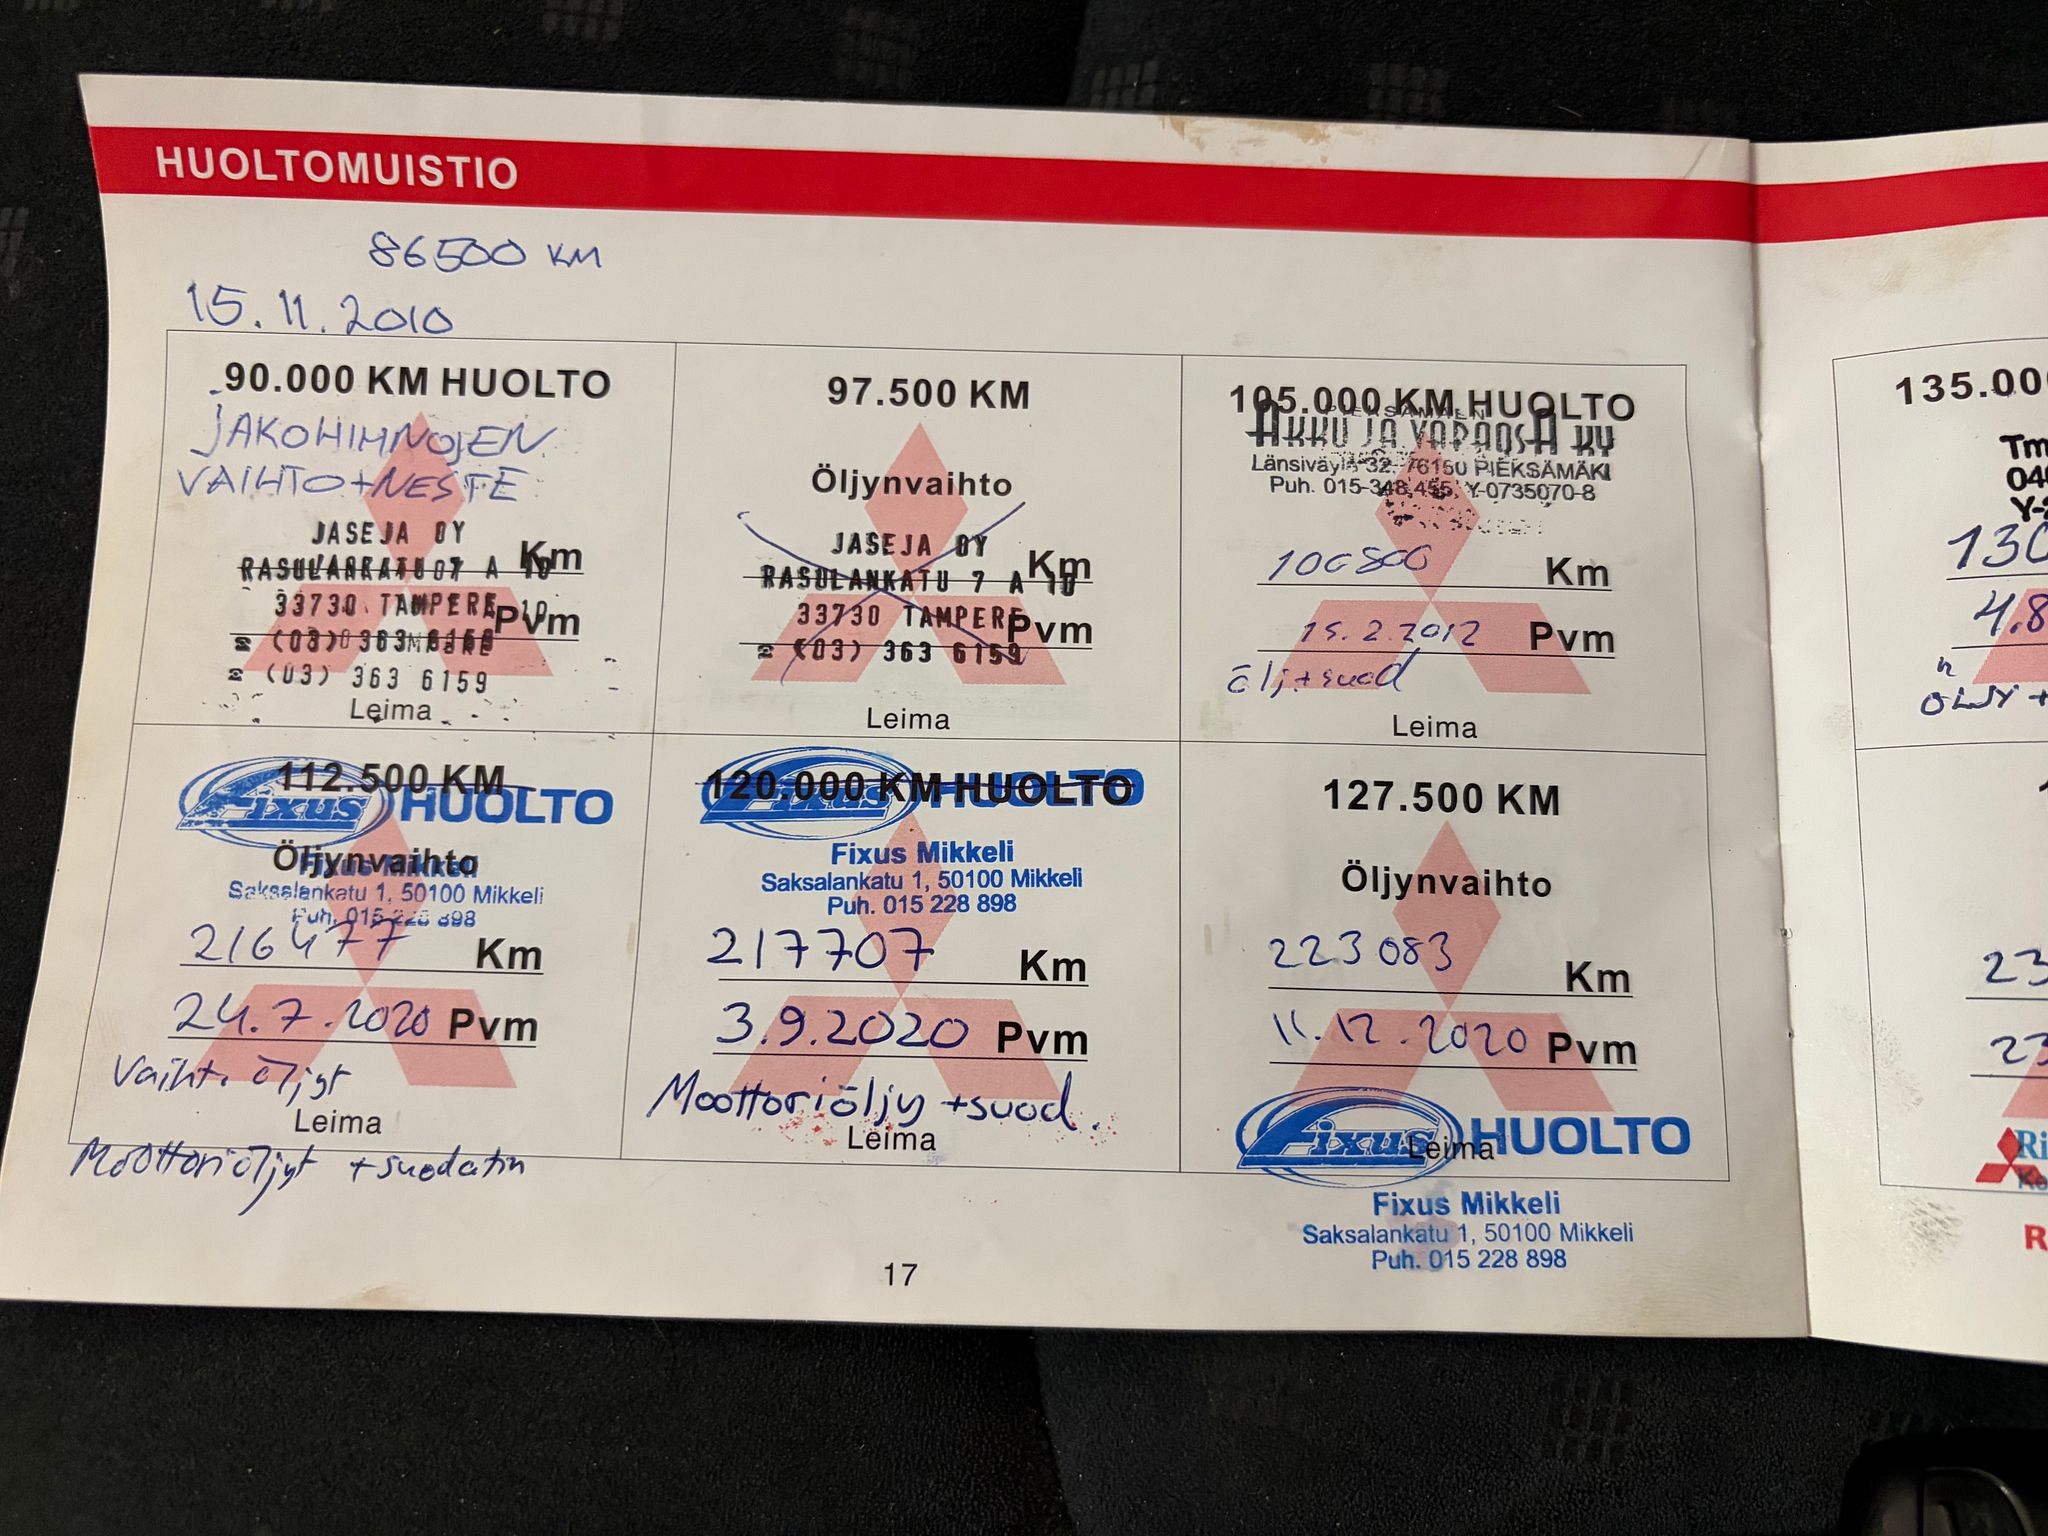 HUOLTOMUISTIO
86500 KM
15.11.2010
90.000 KM HUOLTO
JAKOHIHNOJEN
VAIHTO+NESTE
JASEJA OY
RASULANKATU 7 A 10
33730 TAMPERE
(03) 363 6159
(03) 363 6159
Km
Pvm
Leima
97.500 KM
Öljynvaihto
JASEJA OY
RASULANKATU 7 A 10
33730 TAMPERE
(03) 363 6159
Km
Pvm
Leima
105.000 KM HUOLTO
PIEKSÄMÄEN
AKKU JA VARAOSA KY
Länsiväylä 32, 76150 PIEKSÄMÄKI
Puh. 015-348 455, Y-0735070-8
Km
15.2.2012 Pvm
ölj+suod
Leima
112.500 KM
Fixus HUOLTO
Öljynvaihto
Fixus Mikkeli
Saksalankatu 1, 50100 Mikkeli
Puh. 015 228 898
216477 Km
24.7.2020 Pvm
Vaiht. öljyt
Leima
Moottoriöljyt + suodatin
120.000 KM HUOLTO
Fixus HUOLTO
Fixus Mikkeli
Saksalankatu 1, 50100 Mikkeli
Puh. 015 228 898
217707 Km
3.9.2020 Pvm
Moottoriöljy +suod.
Leima
127.500 KM
Öljynvaihto
223083 Km
11.12.2020 Pvm
Leima
Fixus HUOLTO
Fixus Mikkeli
Saksalankatu 1, 50100 Mikkeli
Puh. 015 228 898
17
135.00
Tm
04
130
4.8
ÖLJY +
23
23
Ri
R